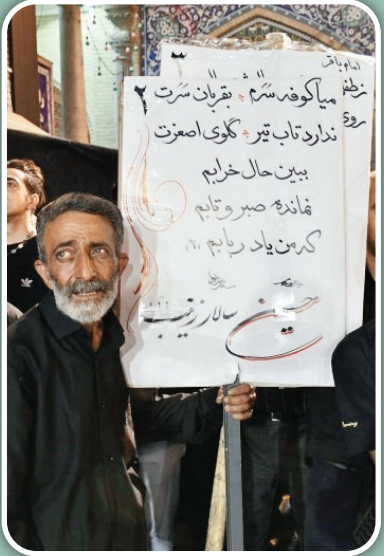 امام باقر
۳
۲ میا کوفه سَرَم * بقربان سَرَت
ندارد تاب تیر * گلوی اصغرت
ببین حال خرابم
نمانده صبر و تابم
که من یاد ربابم (۲)
حسین سالار زینب
روی